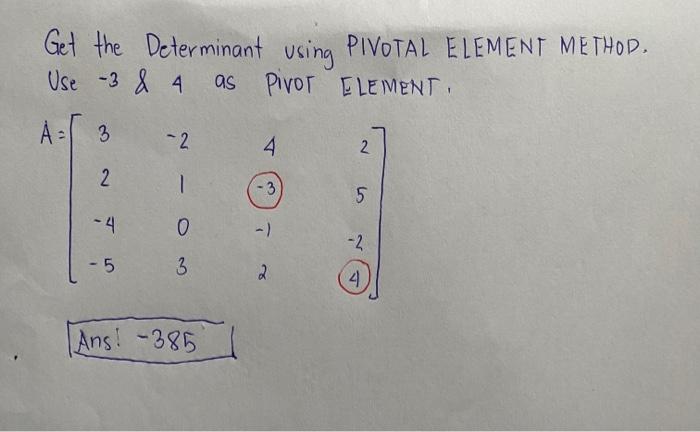 Get the Determinant using PIVOTAL ELEMENT METHOD.
Use -3 & 4 as PIVOT ELEMENT.
A = [ 3 -2 4 2
2 1 -3 5
-4 0 -1 -2
-5 3 2 4 ]
Ans! -385